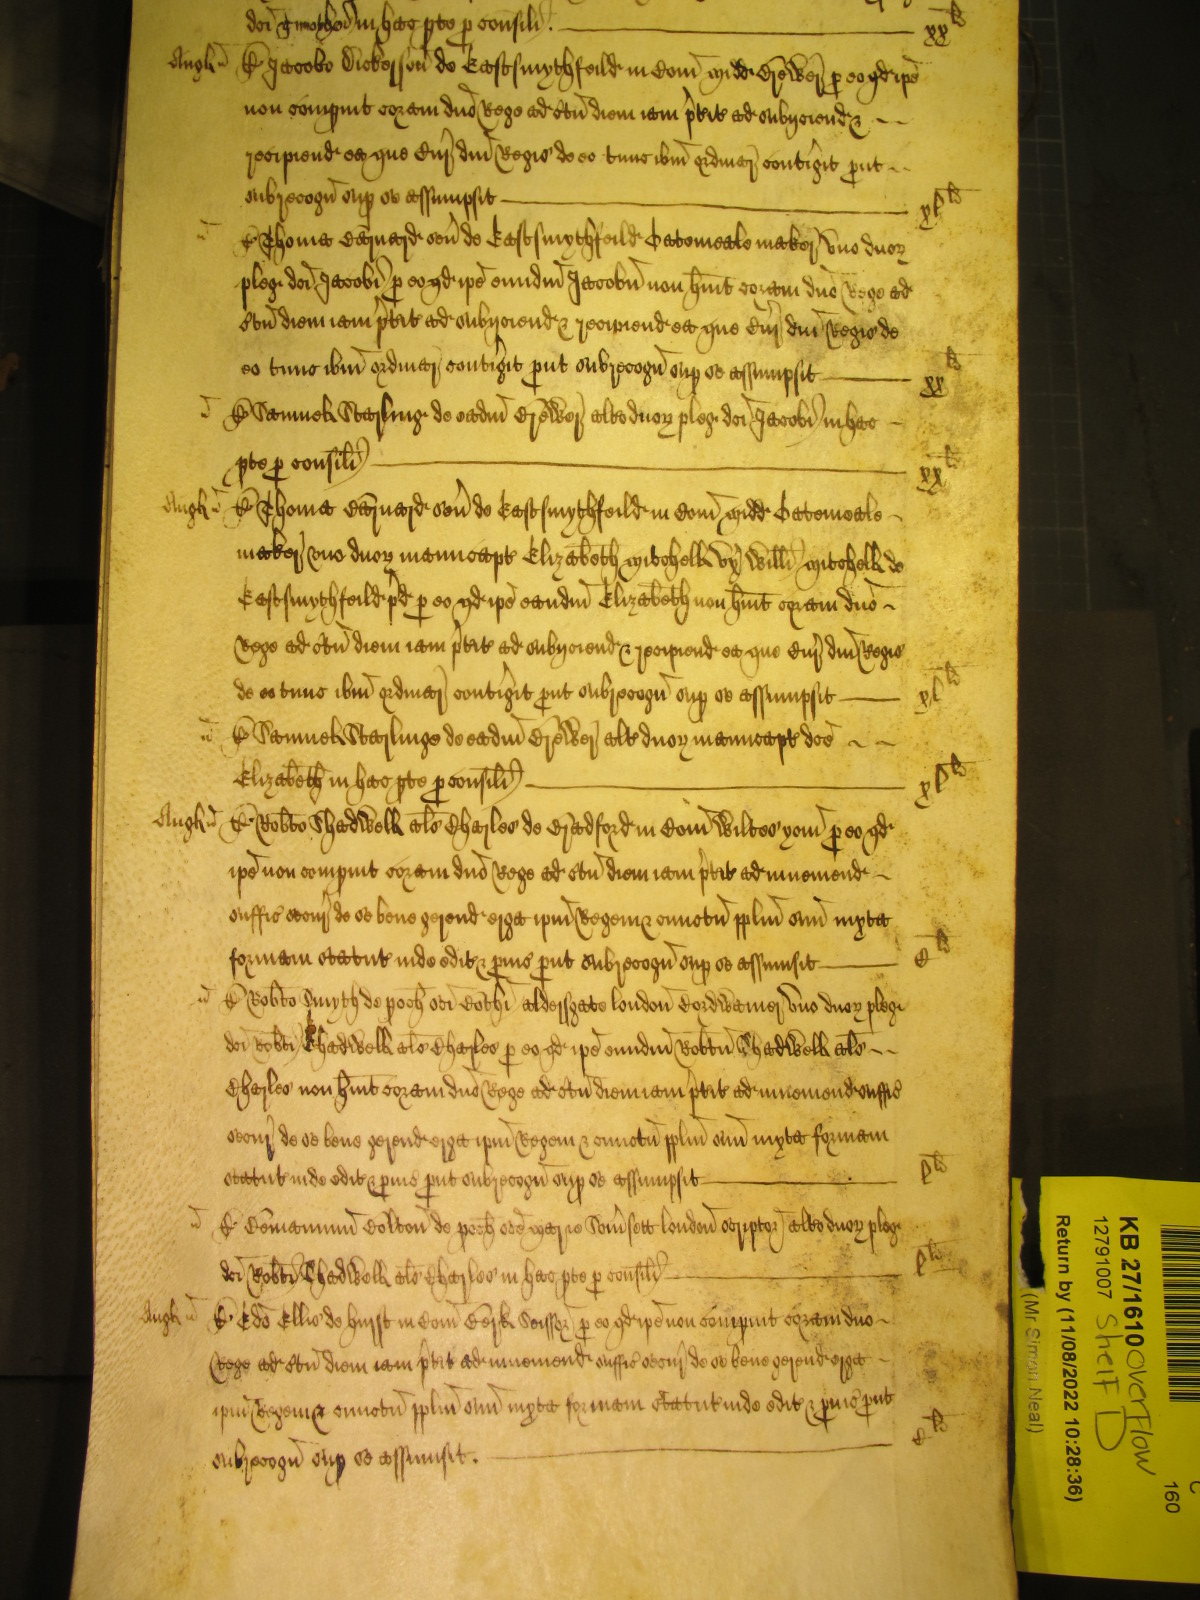 dc̃i Timothei in hac p̱te p̱ consili͠ xx li
Angl ss R̃ Jacobo Dickerson de Eastsmythfeild in Com̃ Midd Brewer p̱ eo qd ip̃e
non comp̱uit coram dño Rege ad c̃tũ diem iam p̃tit ad subijciend &
recipiend ea que Cur̃ dñi Regis de eo tunc ib̃m ordinar̃ contigit p̱ut
sub recogñ sup̱ se assumpsit xl li
ss R̃ Thoma Barnard señ de Eastsmythfeild Oatemeale maker vno duor̃
pleg̃ dc̃i Jacobi p̱ eo qd ip̃e eundm̃ Jacobũ non h̃uit coram dño Rege ad
c̃tũ diem iam p̃tit ad subijciend & recipiend ea que Cur̃ dñi Regis de
eo tunc ib̃m ordinar̃ contigit p̱ut sub recogñ sup̱ se assumpsit xx li
ss R̃ Samuel Starling de eadm̃ Brewer alto duor̃ pleg̃ dc̃i Jacobi in hac
p̱te p̱ consili͠ xx li
Angl ss R̃ Thoma Barnard señ de Eastsmythfeild in Com̃ Midd Oatemeale
maker vno duor̃ manucapt Elizabeth Mitchell vx̃ Willi Mitchell de
Eastsmythfeild p̃d p̱ eo qd ip̃e eandm̃ Elizabeth non h̃uit coram dño
Rege ad c̃tũ diem iam p̃tit ad subijciend & recipiend ea que Cur̃ dñi Regis
de eo tunc ib̃m ordinar̃ contigit p̱ut sub recogñ sup̱ se assumpsit xl li
ss R̃ Samuel Starlinge de eadm̃ Brewer alt duor̃ manucapt dc̃e
Elizabeth in hac p̱te p̱ consili͠ xl li
Angl ss R̃ Rob̃to Shadwell als̃ Charles de Bradford in Com̃ Wiltes yom̃ p̱ eo qd
ip̃e non comp̱uit coram dño Rege ad c̃tũ diem iam p̃tit ad inveniend
suffic̃ secur̃ de se bene gerend erga ip̃m Regem & cunctũ pp̃lm̃ suũ iuxta
formam statut inde edit & p̱uis̃ p̱ut sub recogñ sup̱ se assumsit C li
ss R̃ Rob̃to Smyth de poch̃ sc̃i Bothi Aldersgate london Cordwainer vno duor̃ pleg̃
dc̃i Rob̃ti Shadwell als̃ Charles p̱ eo qd ip̃e eundm̃ Rob̃tũ Shadwell als̃
Charles non h̃uit coram dño Rege ad c̃tũ diem iam p̃tit ad inveniend suffic̃
secur̃ de se bene gerend erga ip̃m Regem & cunctũ pp̃lm̃ suũ iuxta formam
statut inde edit & p̱uis̃ p̱ut sub recogñ sup̱ se assumpsit l li
ss R̃ Colton de poch̃ sc̃e Marie london scriptor alto duor̃ pleg̃
dc̃i Rob̃ti Shadwell als̃ Charles in hac p̱te p̱ consili͠ l li
Angl ss R̃ Edo Ellis de hurst in Com̃ Berk p̱ eo qd ip̃e non comp̱uit coram dño
Rege ad c̃tũ diem iam p̃tit ad inveniend suffic̃ secur̃ de se bene gerend erga
ip̃m Regem & cunctũ pp̃lm̃ suũ iuxta formam statut inde edit & p̱uis̃ p̱ut
sub recogñ sup̱ se assumsit. C li
KB 27/1610 OVERFLOW
12791007 Shelf D
Return by (11/08/2022 10:28:36)
(Mr Simon Neal)
160